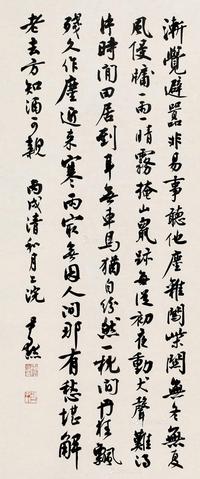 漸覺避囂非易事聽他塵雜閙柴關無冬無夏
風侵牖一雨一晴霧掩山鼠跡每從初夜動犬聲難得
片時閒田居到耳無車馬猶自紛然一枕間丹桂飄
殘久作塵近来寒雨無因人間那有愁堪解
老去方知酒可親 丙戌清和月浣 尹默